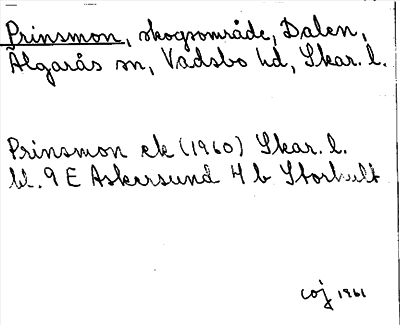 Prinsmon, skogsområde, Dalen,
Älgarås sn, Vadsbo hd, Skar. l.
Prinsmon ek (1960) Skar. l.
bl. 9 E Askersund 4 b Storhult
coj 1961